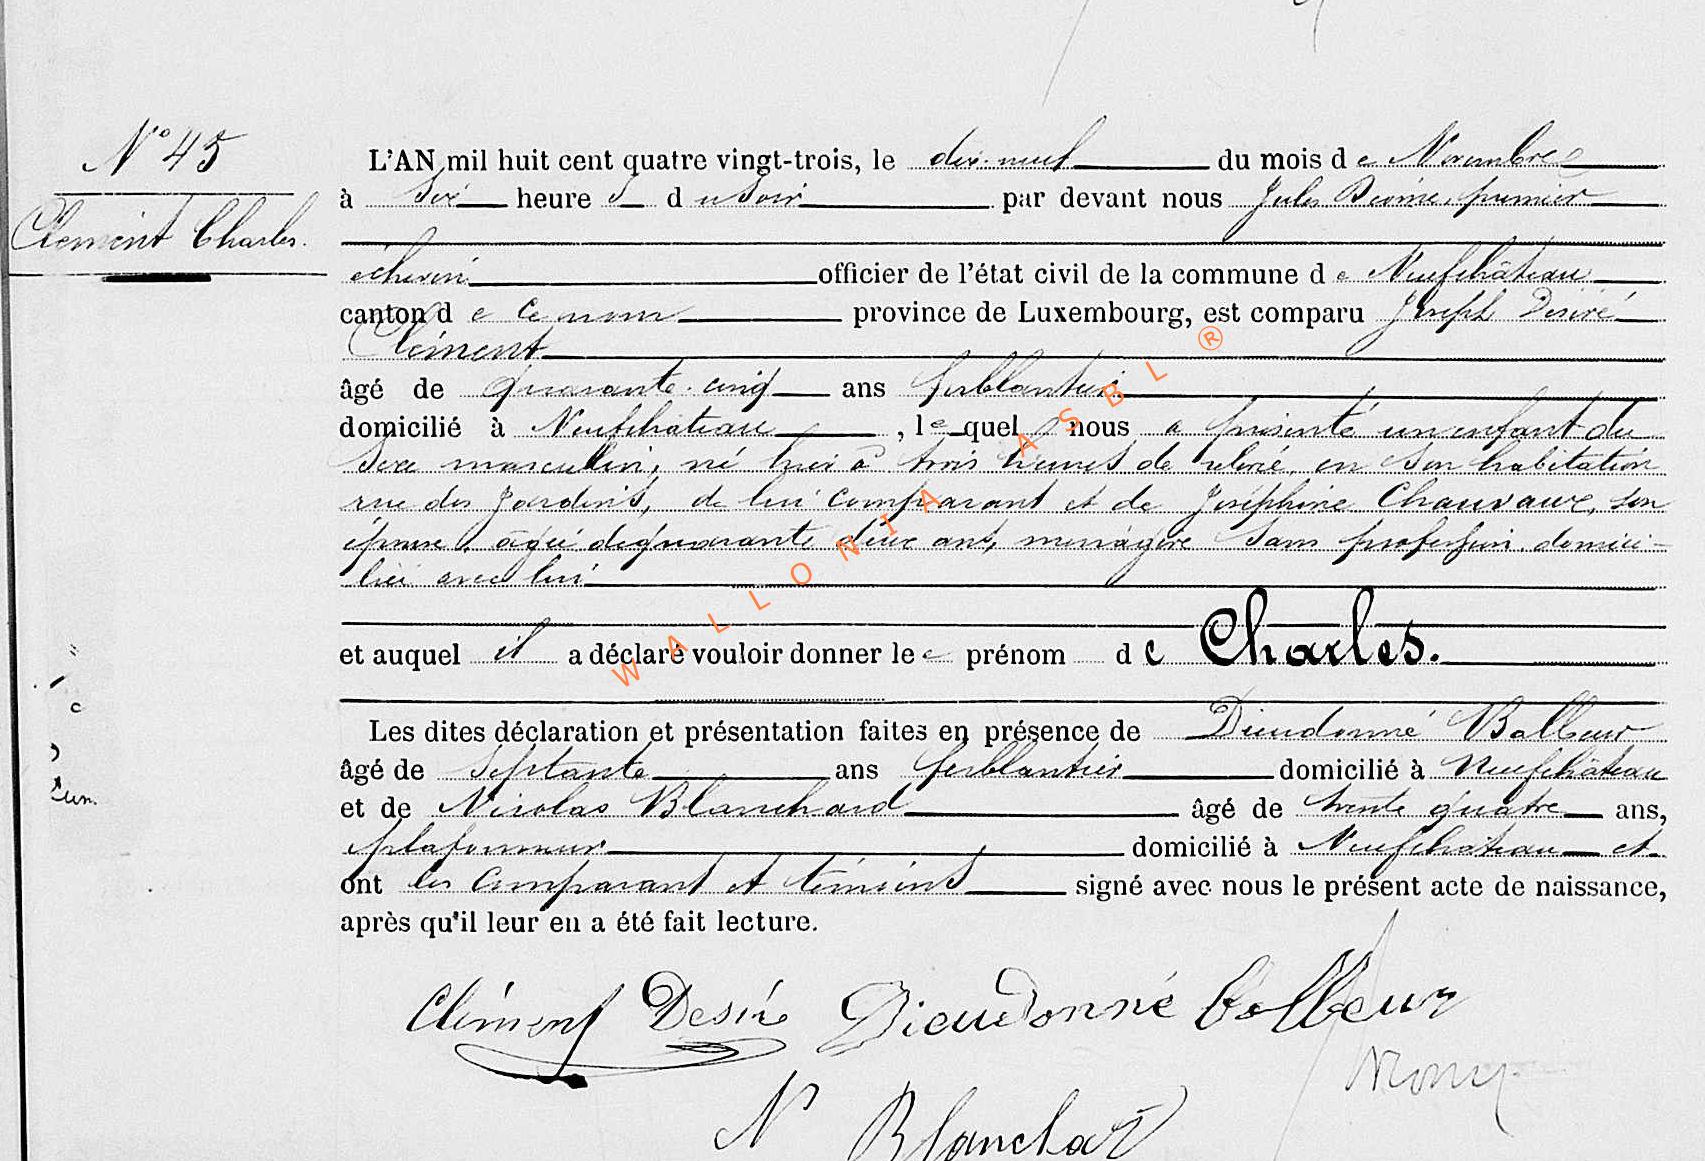 N° 45
Clément Charles.
L'AN mil huit cent quatre vingt-trois, le dix-neuf du mois de Novembre
à six heures du soir par devant nous Jules premier
échevin officier de l'état civil de la commune de Neufchâteau
canton de ce nom province de Luxembourg, est comparu Joseph Désiré
Clément
âgé de quarante-cinq ans ferblantier
domicilié à Neufchâteau, lequel nous a présenté un enfant du
sexe masculin, né hier à trois heures de relevée, en son habitation
rue des Jardins, de lui comparant et de Joséphine Chauvaux, son
épouse, âgée de quarante deux ans, ménagère sans profession, domici-
liée avec lui
et auquel il a déclaré vouloir donner le prénom de Charles.
Les dites déclaration et présentation faites en présence de Dieudonné Balbeur
âgé de septante ans ferblantier domicilié à Neufchâteau
et de Nicolas Blanchard âgé de trente quatre ans,
plafonneur domicilié à Neufchâteau et
ont les comparant et témoins signé avec nous le présent acte de naissance,
après qu'il leur en a été fait lecture.
Clément Desiré Dieudonné Balbeur
N Blanchard
WALLONIA ASBL ®